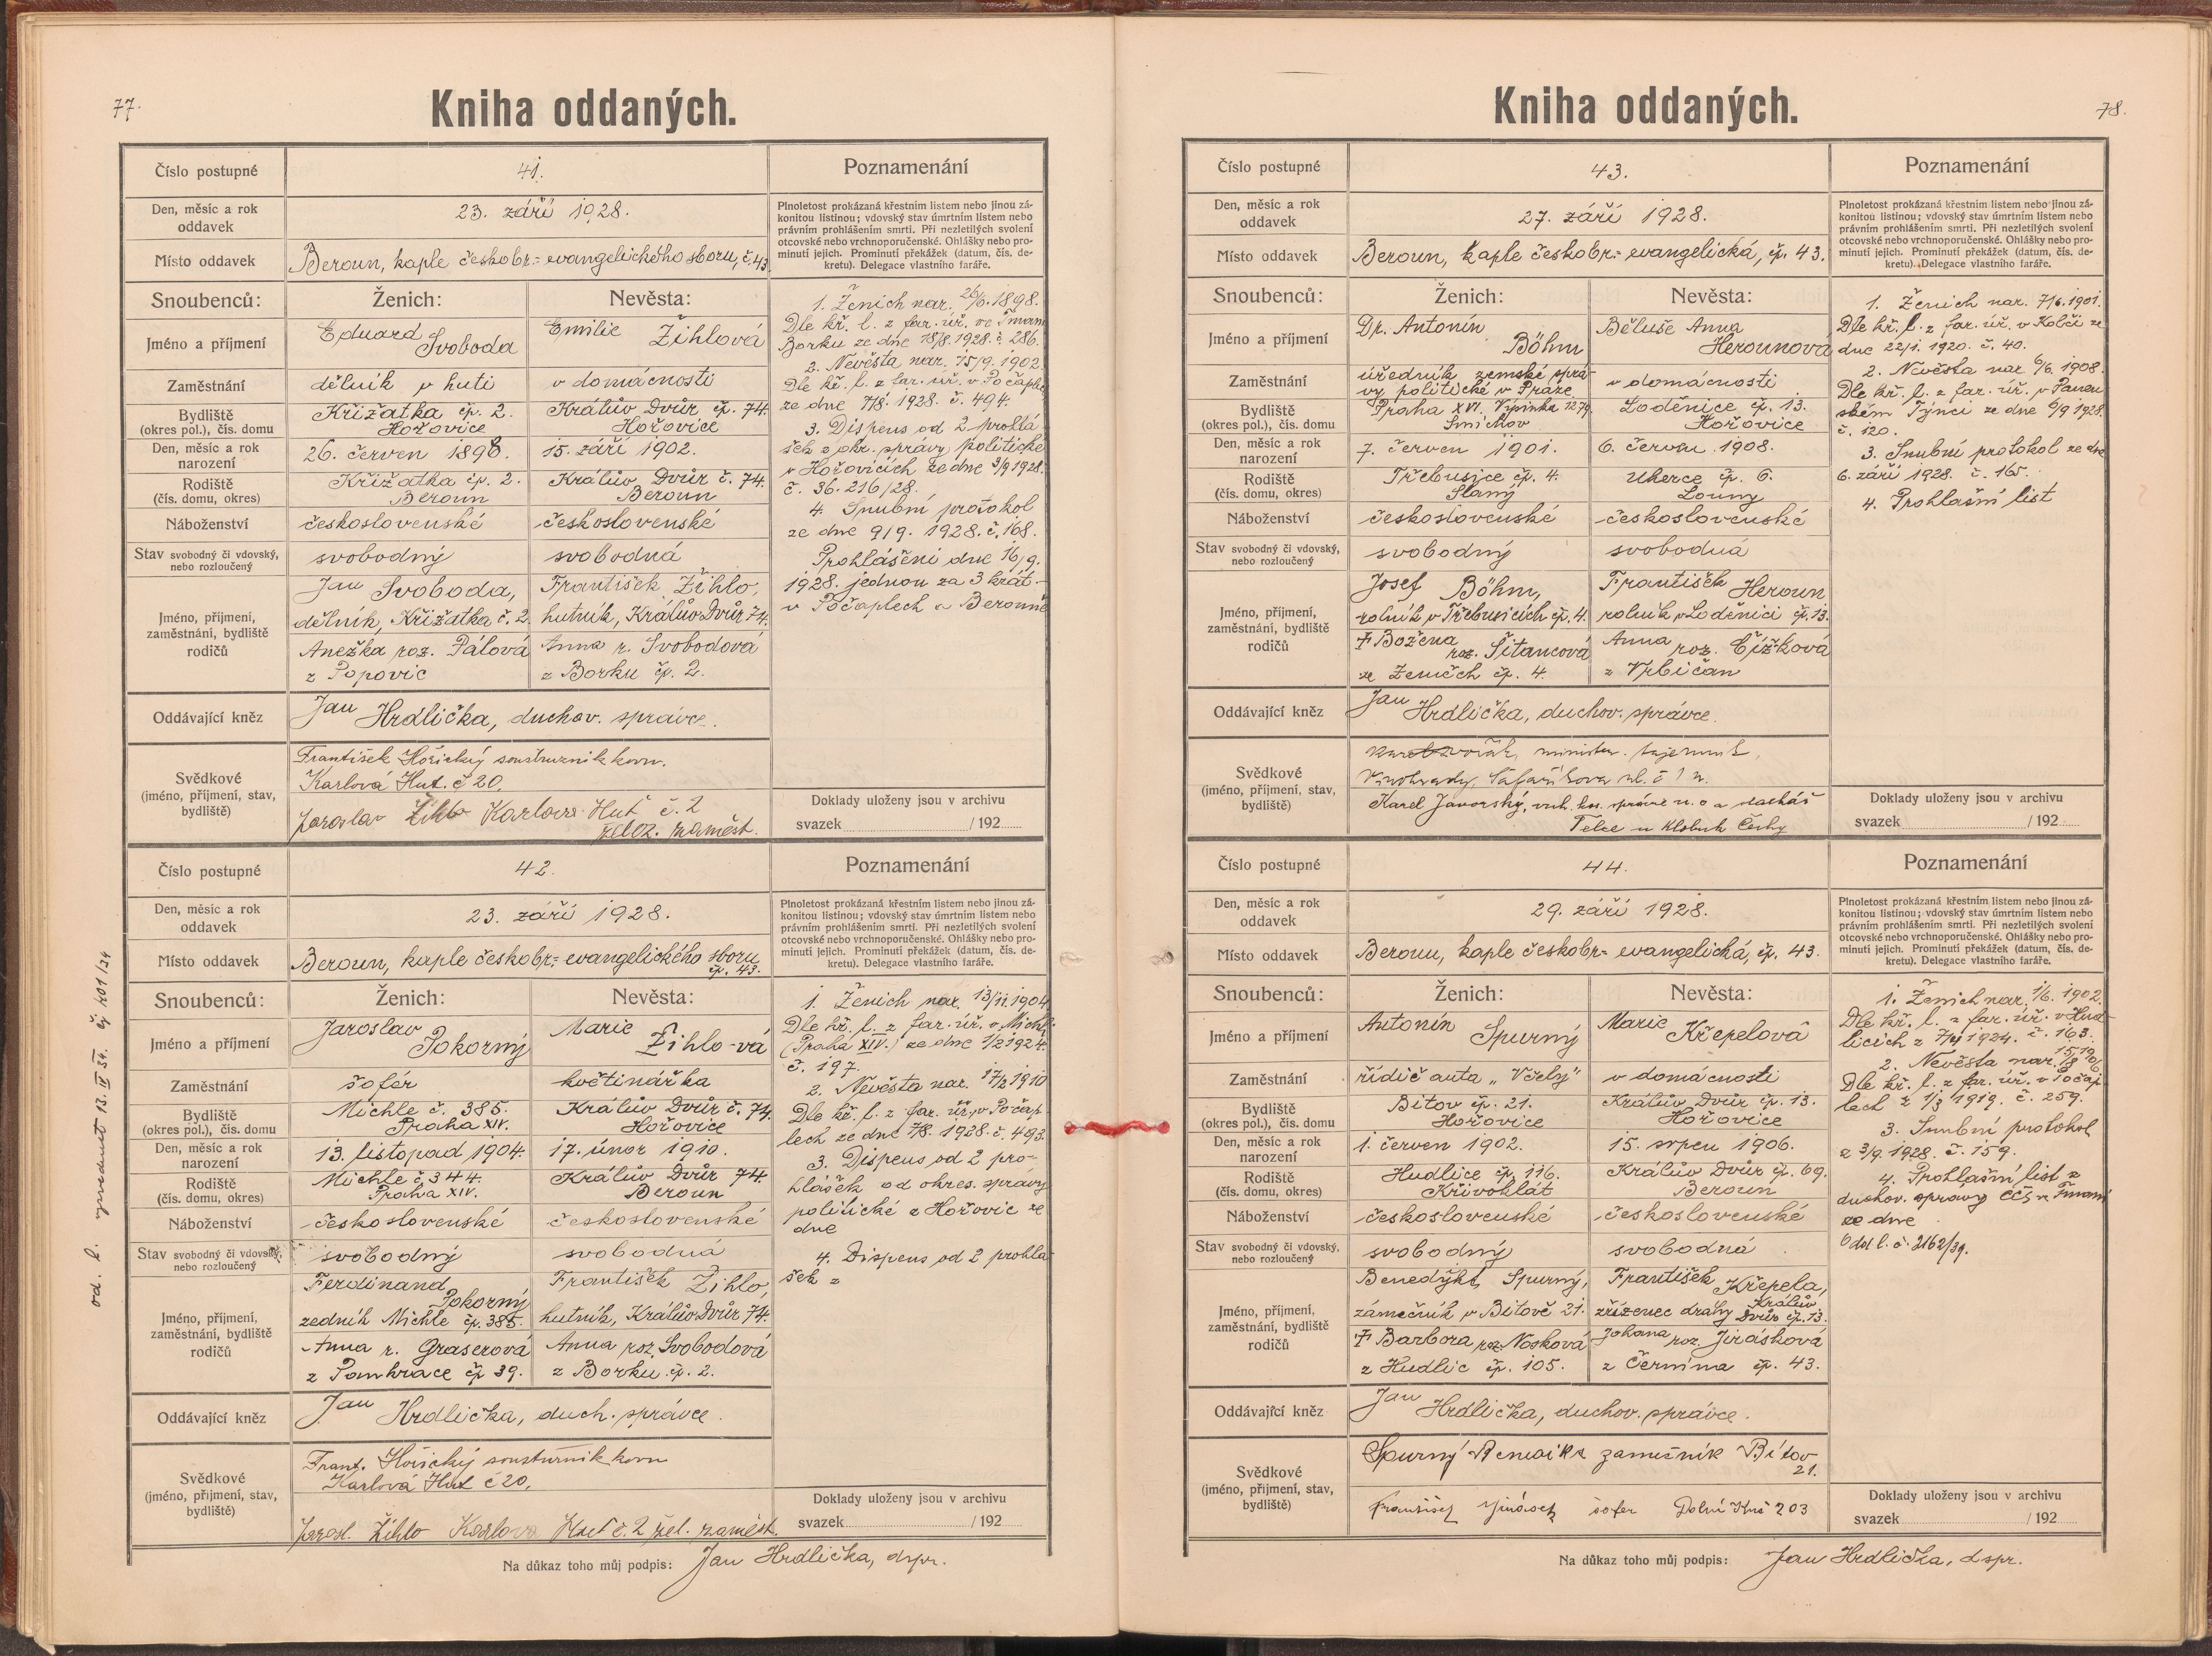 77.
Kniha oddaných.
Číslo postupné
41.
Poznamenání
Den, měsíc a rok
oddavek
23. září 1928.
Plnoletost prokázaná křestním listem nebo jinou zá-
konitou listinou; vdovský stav úmrtním listem nebo
právním prohlášením smrti. Při nezletilých svolení
otcovské nebo vrchnoporučenské. Ohlášky nebo pro-
minutí jejich. Prominutí překážek (datum, čís. de-
kretu). Delegace vlastního faráře.
Místo oddavek
Beroun, kaple českobr.- evangelického sboru, č. 43
Snoubenců:
Ženich:
Nevěsta:
Jméno a příjmení
Eduard Svoboda
Emilie Žihlová
Zaměstnání
dělník v huti
v domácnosti
Bydliště
(okres pol.), čís. domu
Křižatka čp. 2.
Hořovice
Králův Dvůr čp. 74.
Hořovice
Den, měsíc a rok
narození
26. červen 1898.
15. září 1902.
Rodiště
(čís. domu, okres)
Křižatka čp. 2.
Beroun
Králův Dvůr č. 74.
Beroun
Náboženství
československé
československé
Stav svobodný či vdovský,
nebo rozloučený
svobodný
svobodná
Jméno, příjmení,
zaměstnání, bydliště
rodičů
Jan Svoboda,
dělník, Křižatka č. 2.
Anežka roz. Pálová
z Popovic
František Žihlo,
hutník, Králův Dvůr 74.
Anna r. Svobodová
z Borku čp. 2.
Oddávající kněz
Jan Hrdlička, duchov. správce.
Svědkové
(jméno, příjmení, stav,
bydliště)
František Hořický soustružník kovu.
Karlová Huť. č 20.
Jaroslav Žihlo Karlova Huť č. 2
želez. zaměst.
1. Ženich nar. 26/6. 1898.
Dle kř. l. z far. úř. ve Tmani
Borku ze dne 18/8. 1928. č. 286.
2. Nevěsta nar. 15/9. 1902
Dle kř. l. z far. úř. v Počaplech
ze dne 7/8. 1928. č. 494.
3. Dispens od 2 prohlá
šek z okr. správy politické
v Hořovicích ze dne 3/9 1928.
č. 36.216/28.
4. Snubní protokol
ze dne 9/9. 1928. č. 168.
Prohlášeni dne 16/9.
1928. jednou za 3 krát -
v Počaplech a Berouně
Doklady uloženy jsou v archivu
svazek /192
Číslo postupné
42.
Poznamenání
Den, měsíc a rok
oddavek
23. září 1928.
Plnoletost prokázaná křestním listem nebo jinou zá-
konitou listinou; vdovský stav úmrtním listem nebo
právním prohlášením smrti. Při nezletilých svolení
otcovské nebo vrchnoporučenské. Ohlášky nebo pro-
minutí jejich. Prominutí překážek (datum, čís. de-
kretu). Delegace vlastního faráře.
Místo oddavek
Beroun, kaple českobr.- evangelického sboru
čp. 43.
Snoubenců:
Ženich:
Nevěsta:
Jméno a příjmení
Jaroslav Pokorný
Marie Žihlo-vá
Zaměstnání
šofér
květinářka
Bydliště
(okres pol.), čís. domu
Michle č. 385.
Praha XIV.
Králův Dvůr č. 74.
Hořovice
Den, měsíc a rok
narození
13. listopad 1904.
17. únor 1910.
Rodiště
(čís. domu, okres)
Michle č 344.
Praha XIV.
Králův Dvůr 74.
Beroun
Náboženství
československé
československé
Stav svobodný či vdovský,
nebo rozloučený
svobodný
svobodná
Jméno, příjmení,
zaměstnání, bydliště
rodičů
Ferdinand Pokorný
zedník Michle čp. 385.
Anna r. Graserová
z Pankrace čp 39.
František Žihlo,
hutník, Králův Dvůr 74.
Anna roz. Svobodová
z Borku čp. 2.
Oddávající kněz
Jan Hrdlička, duch. správce.
Svědkové
(jméno, příjmení, stav,
bydliště)
Frant. Hořický soustružník kovu
Karlová Huť č 20.
Jarosl. Žihlo Karlova Huť č. 2 žel. zaměst.
1. Ženich nar. 13/11. 1904
Dle kř. l. z far. úř. v Michli
(Praha XIV.) ze dne 1/2 1924.
č. 197.
2. Nevěsta nar. 17/2 1910
Dle kř. l. z far. úř. v Počap
lech ze dne 7/8. 1928. č. 493.
3. Dispens od 2 pro-
hlášek od okres. správy
politické z Hořovic ze
dne
4. Dispens od 2 prohla
šek z
Doklady uloženy jsou v archivu
svazek /192
Na důkaz toho můj podpis: Jan Hrdlička, dspr.
od. l. vydán 13. II 34. čj 401/34
78.
Kniha oddaných.
Číslo postupné
43.
Poznamenání
Den, měsíc a rok
oddavek
27. září 1928.
Plnoletost prokázaná křestním listem nebo jinou zá-
konitou listinou; vdovský stav úmrtním listem nebo
právním prohlášením smrti. Při nezletilých svolení
otcovské nebo vrchnoporučenské. Ohlášky nebo pro-
minutí jejich. Prominutí překážek (datum, čís. de-
kretu). Delegace vlastního faráře.
Místo oddavek
Beroun, kaple českobr.- evangelická, čp. 43.
Snoubenců:
Ženich:
Nevěsta:
Jméno a příjmení
Dr. Antonín Böhm
Běluše Anna Herounová
Zaměstnání
úředník zemské sprá-
vy politické v Praze
v domácnosti
Bydliště
(okres pol.), čís. domu
Praha XVI. Výpinka 1279.
Smíchov
Loděnice čp. 13.
Hořovice
Den, měsíc a rok
narození
7. červen 1901.
6. červen 1908.
Rodiště
(čís. domu, okres)
Třebusice čp. 4.
Slaný
Uherce čp. 6.
Louny
Náboženství
československé
československé
Stav svobodný či vdovský,
nebo rozloučený
svobodný
svobodná
Jméno, příjmení,
zaměstnání, bydliště
rodičů
Josef Böhm,
rolník v Třebusicích čp. 4.
† Božena roz. Šitancová
ze Zeměch čp. 4.
František Heroun
rolník v Loděnici čp. 13.
Anna roz. Čížková
z Vrbičan
Oddávající kněz
Jan Hrdlička, duchov. správce.
Svědkové
(jméno, příjmení, stav,
bydliště)
Karel Dvořák, minister. tajemník,
Vinohrady, Šafaříkova ul. č 1 n.
Karel Javorský,
Telce u Klobuk Česky
1. Ženich nar. 7/6. 1901.
Dle kř. l. z far. úř. v Kolči ze
dne 22/1. 1920. č. 40.
2. Nevěsta nar 6/6. 1908.
Dle kř. l. z far. úř. v Panen
ském Týnci ze dne 6/9 1928.
č. 120.
3. Snubní protokol ze dne
6. září 1928. č. 165.
4. Prohlašní list
Doklady uloženy jsou v archivu
svazek /192
Číslo postupné
44.
Poznamenání
Den, měsíc a rok
oddavek
29. září 1928.
Plnoletost prokázaná křestním listem nebo jinou zá-
konitou listinou; vdovský stav úmrtním listem nebo
právním prohlášením smrti. Při nezletilých svolení
otcovské nebo vrchnoporučenské. Ohlášky nebo pro-
minutí jejich. Prominutí překážek (datum, čís. de-
kretu). Delegace vlastního faráře.
Místo oddavek
Beroun, kaple českobr.- evangelická, čp. 43.
Snoubenců:
Ženich:
Nevěsta:
Jméno a příjmení
Antonín Spurný
Marie Křepelová
Zaměstnání
řídič auta „Včely"
v domácnosti
Bydliště
(okres pol.), čís. domu
Bítov čp. 21.
Hořovice
Králův Dvůr čp. 13.
Hořovice
Den, měsíc a rok
narození
1. červen 1902.
15. srpen 1906.
Rodiště
(čís. domu, okres)
Hudlice čp. 116.
Křivoklát
Králův Dvůr čp. 69.
Beroun
Náboženství
československé
československé
Stav svobodný či vdovský,
nebo rozloučený
svobodný
svobodná
Jméno, příjmení,
zaměstnání, bydliště
rodičů
Benedýkt Spurný,
zámečník v Bítově 21.
† Barbora roz. Nosková
z Hudlic čp. 105.
František Křepela,
zřízenec dráhy Králův Dvůr čp. 13.
Johana roz. Jirásková
z Černína čp. 43.
Oddávající kněz
Jan Hrdlička, duchov. správce.
Svědkové
(jméno, příjmení, stav,
bydliště)
Spurný Benedikt zámečník Bítov
21.
František Jirásek šofer Dolní Huť 203
1. Ženich nar. 1/6. 1902.
Dle kř. l. z far. úř. v Hud-
licích z 1924. č. 163.
2. Nevěsta nar. 15/8 1906
Dle kř. l. z far. úř. v Počap
lech z 1/3 1919. č. 259.
3. Snubní protokol
z 3/9. 1928. č. 159.
4. Prohlašní list z
duchov. správy CČS v Tmani
ze dne
Odd l. č. 2162/39.
Doklady uloženy jsou v archivu
svazek /192
Na důkaz toho můj podpis: Jan Hrdlička, dspr.